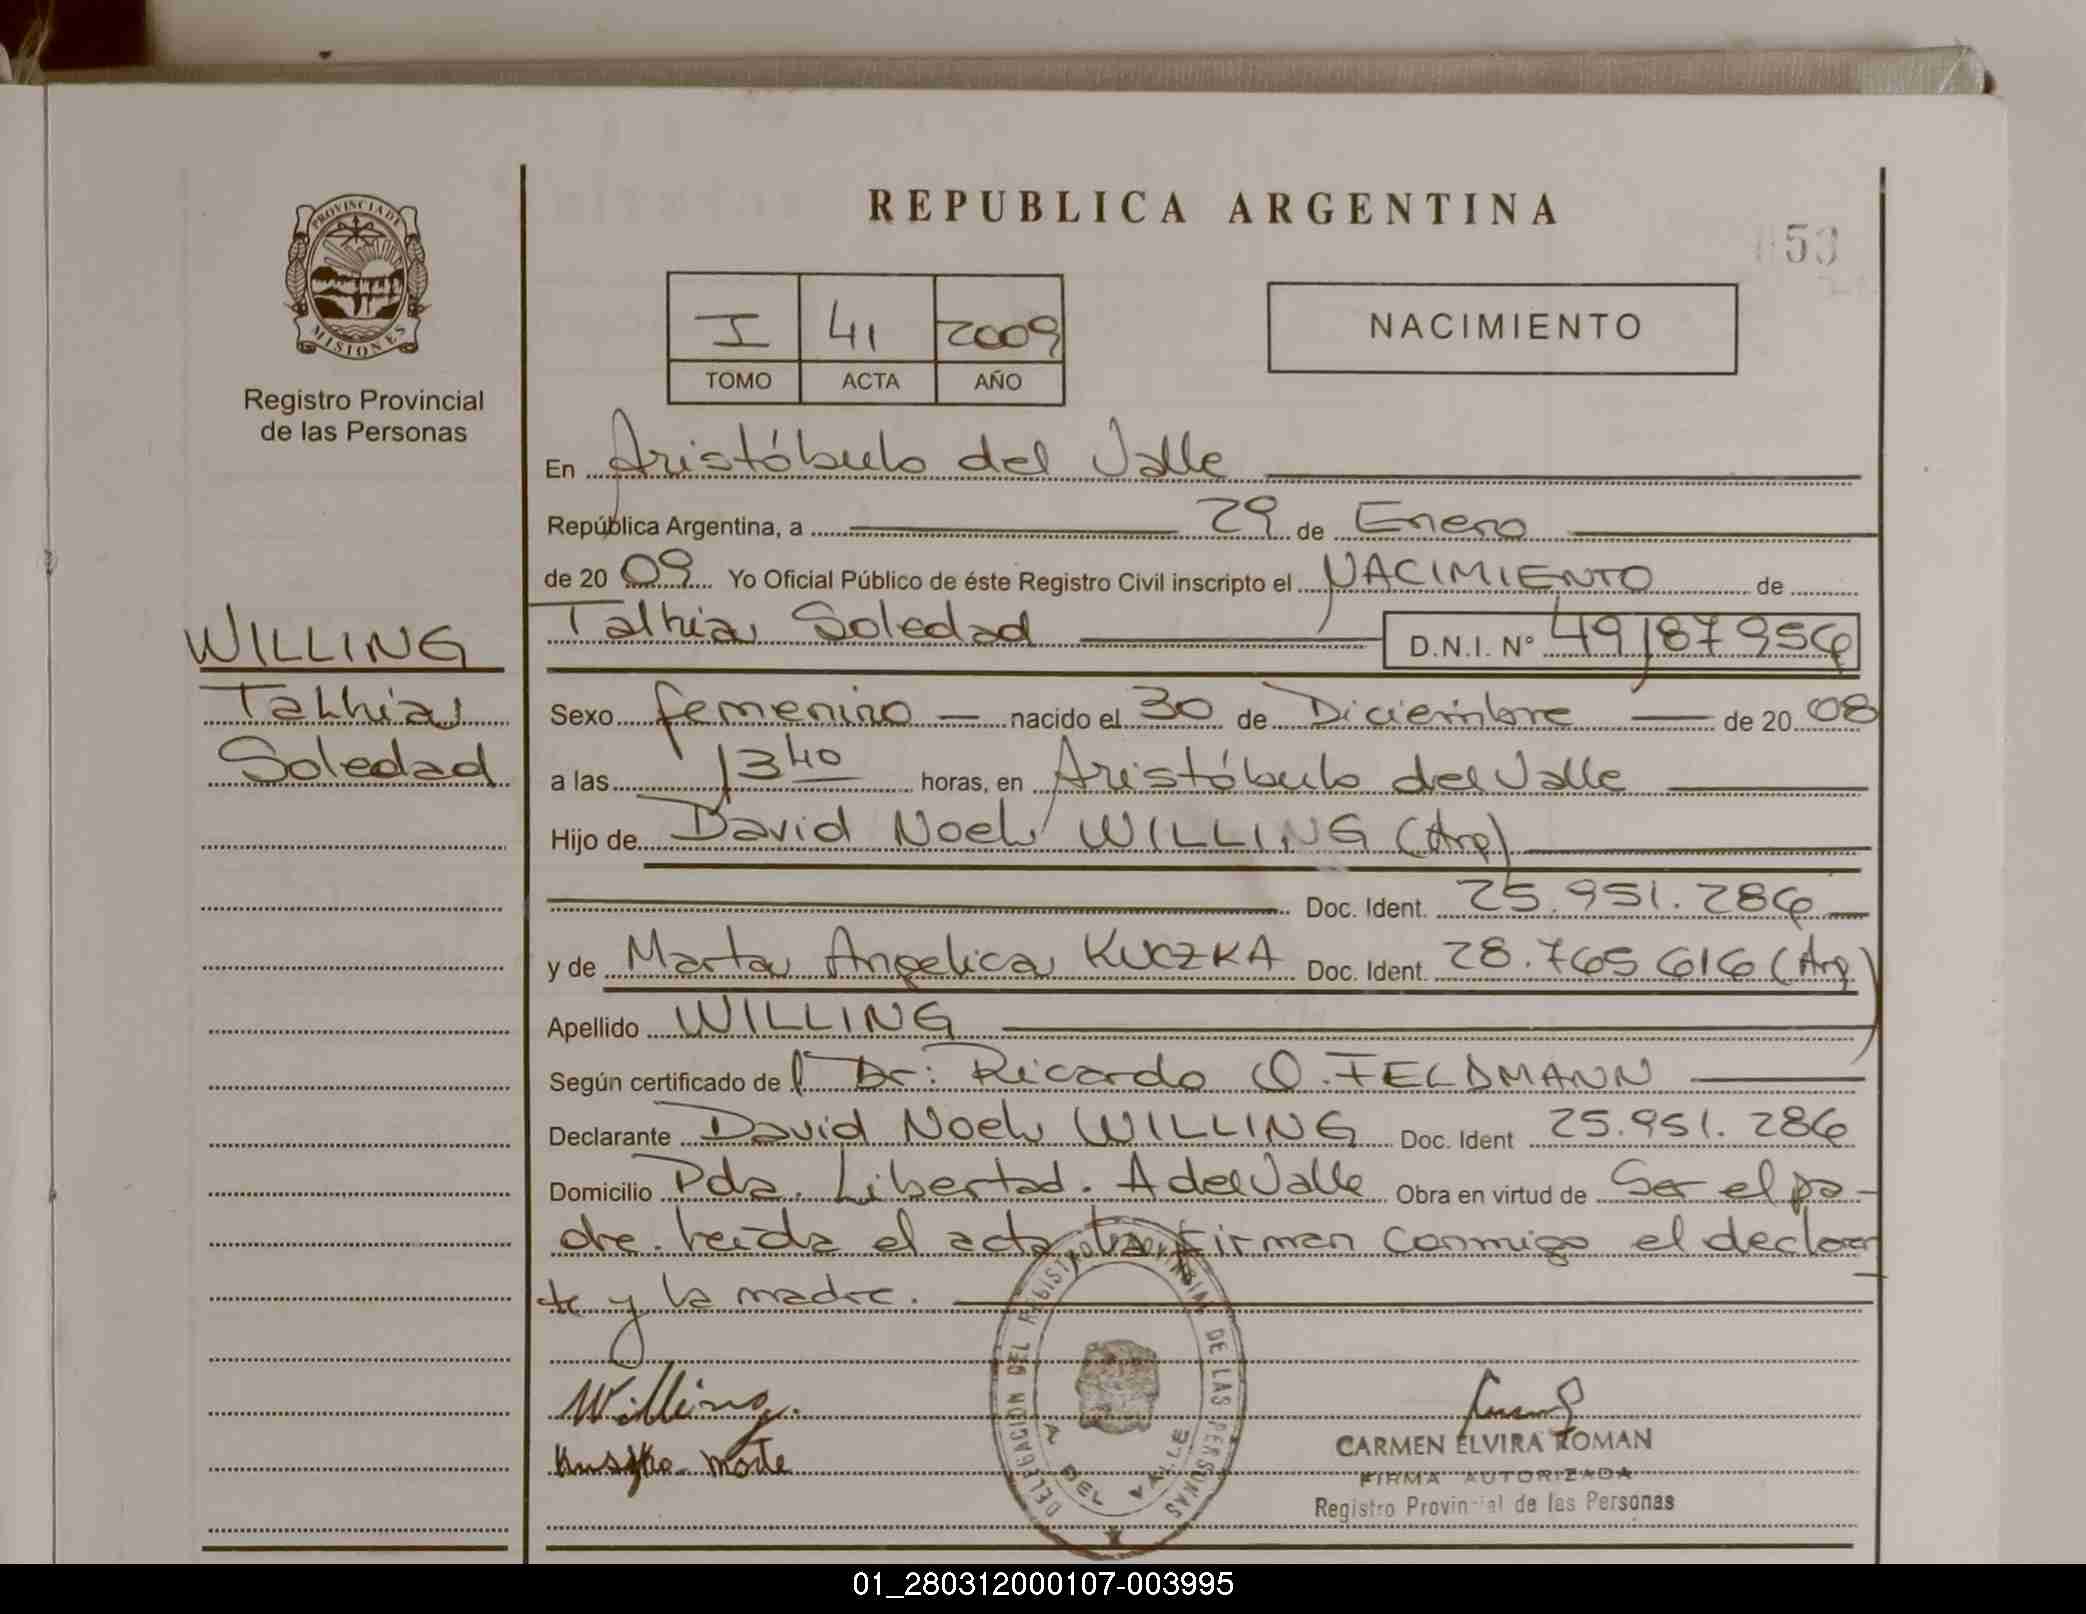 REPUBLICA ARGENTINA
053
PROVINCIA DE
MISIONES
Registro Provincial
de las Personas
I 41 2009
TOMO ACTA AÑO
NACIMIENTO
En Aristóbulo del Valle
República Argentina, a 29 de Enero
de 20 09 Yo Oficial Público de éste Registro Civil inscripto el NACIMIENTO de
Talhia Soledad D.N.I. N° 49187956
WILLING
Talhia
Soledad
Sexo femenino nacido el 30 de Diciembre de 20 08
a las 13 40 horas, en Aristóbulo del Valle
Hijo de David Noel WILLING (Arg)
Doc. Ident. 25.951.286
y de Marta Angelica KUCZKA Doc. Ident. 28.765 616 (Arg)
Apellido WILLING
Según certificado de Dr: Ricardo O. FELDMANN
Declarante David Noel WILLING Doc. Ident 25.951.286
Domicilio Pda. Libertad. A del Valle Obra en virtud de Ser el pa-
dre. Leída el acta la firman conmigo el declaran
te y la madre.
Willing.
DELEGACION DEL REGISTRO PROVINCIAL DE LAS PERSONAS
A. DEL VALLE
CARMEN ELVIRA ROMAN
FIRMA AUTORIZADA
Registro Provincial de las Personas
01_280312000107-003995